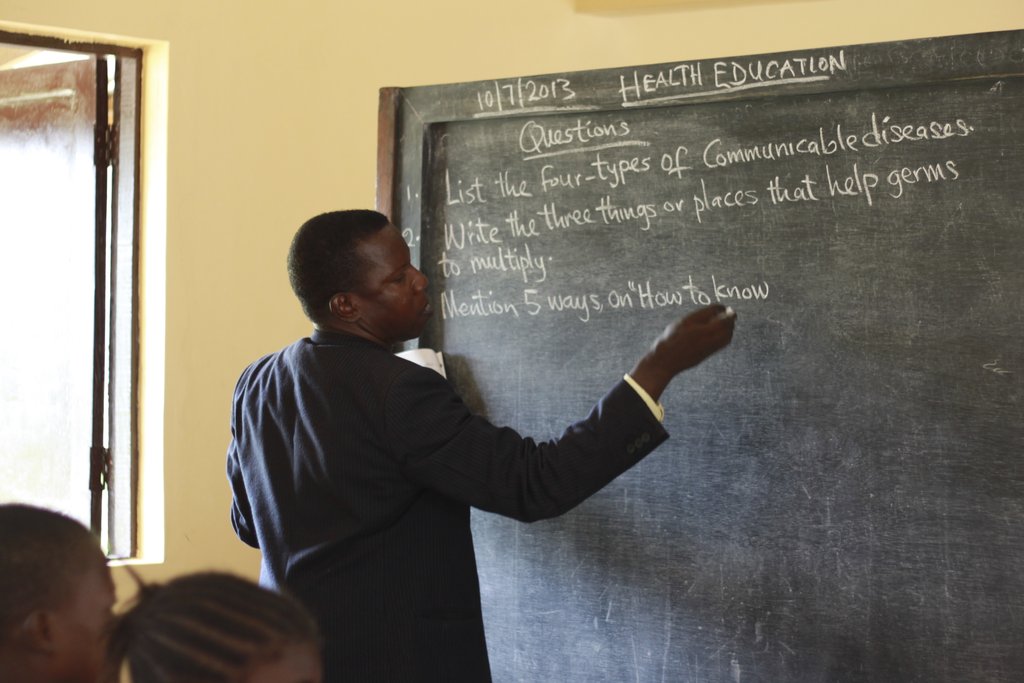 10/7/2013 HEALTH EDUCATION
Questions
1. List the four-types of Communicable diseases.
2. Write the three things or places that help germs
to multiply.
Mention 5 ways, on "How to know